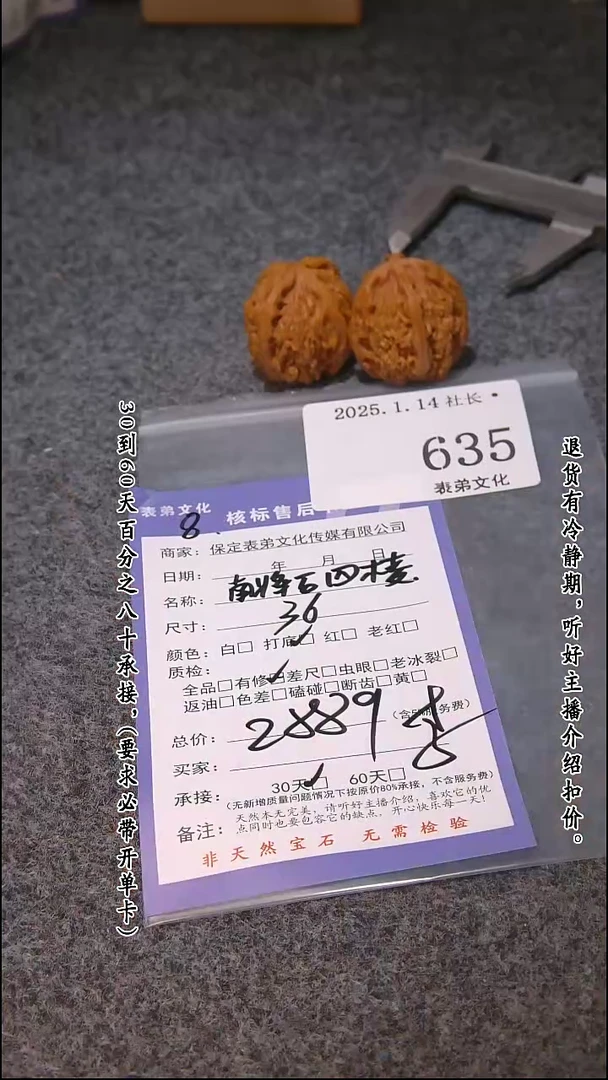 2025.1.14 社长
635
表弟文化
表弟文化 核标售后
8
商家：保定表弟文化传媒有限公司
日期： 年 月 日
名称：南将石四楼
尺寸：36
颜色：白□ 打底□✓ 红□ 老红□
质检：
全品□有修□✓差尺□虫眼□老冰裂□
返油□色差□磕碰□断齿□黄□
总价：2889
买家：
承接：30天□✓ 60天□
(无新增质量问题情况下按原价80%承接，不含服务费)
备注：天然本无完美，请听好主播介绍，喜欢它的优
点同时也要包容它的缺点，开心快乐每一天！
非天然宝石 无需检验
30到60天百分之八十承接，(要求必带开单卡)
退货有冷静期，听好主播介绍扣价。